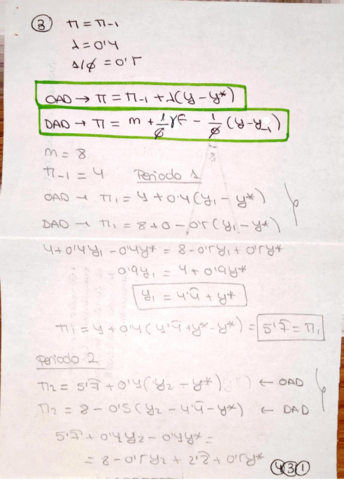 ③ π = π-1
λ = 0'4
1/φ = 0'5
OAD → π = π-1 + λ(y - y*)
DAD → π = m + 1/φ γF - 1/φ (y - y-1)
m = 8
π-1 = 4 Periodo 1
OAD → π1 = 4 + 0'4 (y1 - y*)
DAD → π1 = 8 + 0 - 0'5 (y1 - y*)
4 + 0'4y1 - 0'4y* = 8 - 0'5y1 + 0'5y*
0'9y1 = 4 + 0'9y*
y1 = 4'4̂ + y*
π1 = 4 + 0'4 (4'4̂ + y* - y*) = 5'7̂ = π1
Periodo 2
π2 = 5'7̂ + 0'4 (y2 - y*) ← OAD
π2 = 8 - 0'5 (y2 - 4'4̂ - y*) ← DAD
5'7̂ + 0'4y2 - 0'4y* =
= 8 - 0'5y2 + 2'2̂ + 0'5y*